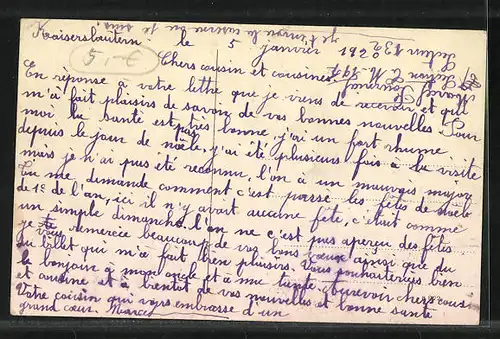 je t'envoie la caserne ou je suis
Kaiserslautern le 5 janvier 1920
5.-€
Chers cousin et cousine
En réponse à votre lettre que je viens de recevoir et qui
m'a fait plaisirs de savoir de vos bonnes nouvelles. Pour
moi la santé est pas très bonne, j'ai un fort rhume
depuis le jour de noële, j'ai été plusieurs fois à la visite
mais je n'ai pas été reconnu, l'on a un mauvais major
Tu me demande comment c'est passé les fêtes de noële
de 1e de l'an, ici il n'y avait aucune fête, c'était comme
un simple dimanche, l'on ne c'est pas aperçu des fêtes
je vous remercie beaucoup de vos bons voeux ainsi que du
billet qui m'a fait bien plaisirs. Vous souhaiterez bien
le bonjour à mon oncle et a me tante. Aurevoir chers cousin
et cousine et à bientot de vos nouvelles et bonne santé
Votre cousin qui vous embrasse d'un
grand cœur. Marcel